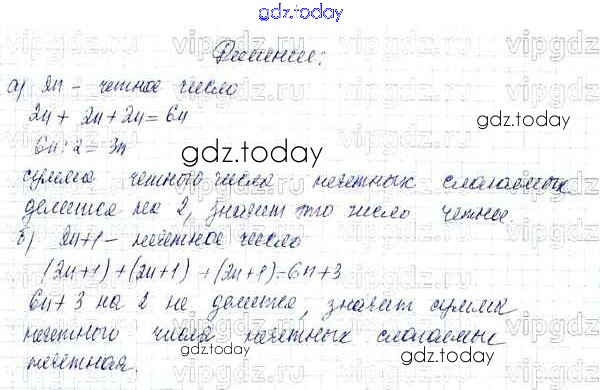 gdz.today
Решение:
а) 2n - четное число
2n + 2n + 2n = 6n
6n : 2 = 3n
gdz.today
сумма четного числа нечетных слагаемых
делится на 2, значит это число четное.
gdz.today
б) 2n+1 - нечетное число
(2n+1) + (2n+1) + (2n+1) = 6n+3
6n+3 на 2 не делится, значит сумма
нечетного числа нечетных слагаемых
gdz.today
нечетная.